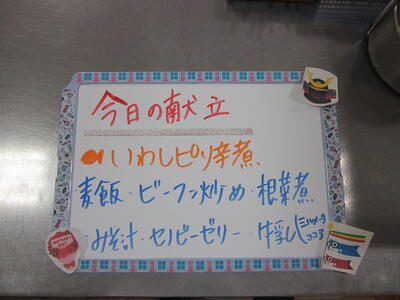 今日の献立
いわしピリ辛煮
麦飯・ビーフン炒め・根菜煮
みそ汁・セノビーゼリー・牛乳(ミルメーク
ココア